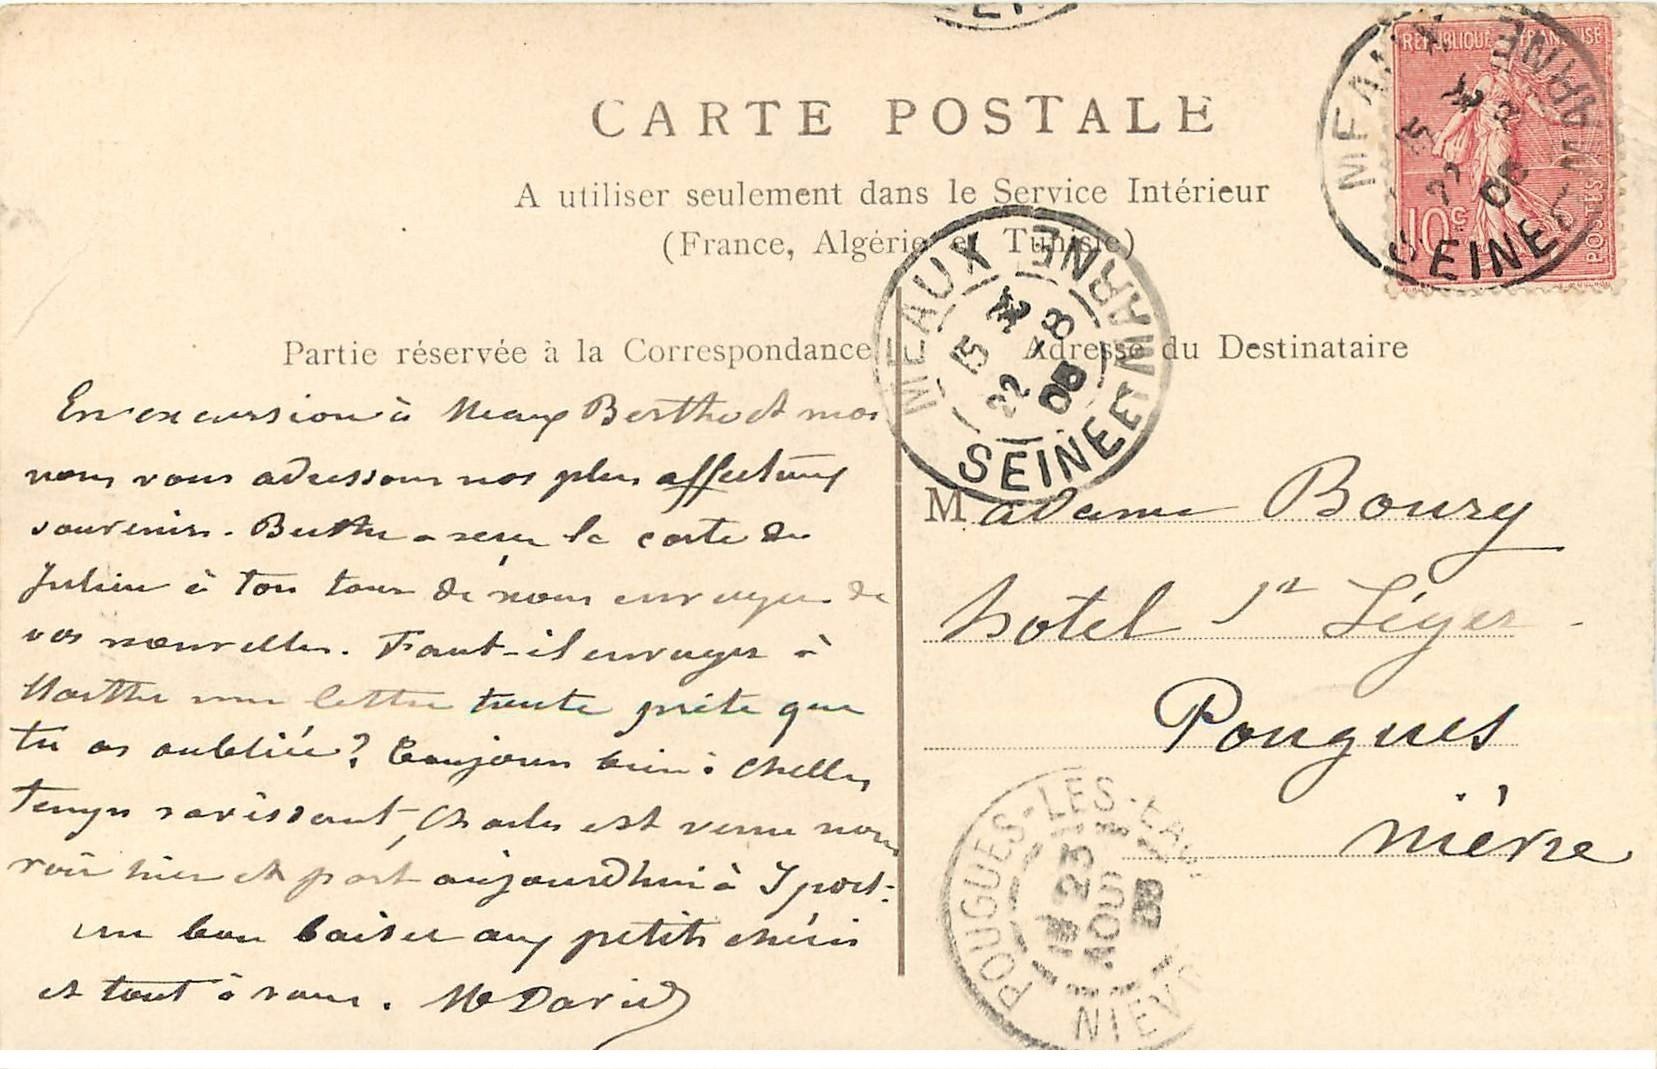 CARTE POSTALE
A utiliser seulement dans le Service Intérieur
(France, Algérie et Tunisie)
RÉPUBLIQUE FRANÇAISE
10c
POSTES
MEAUX
SEINE ET MARNE
22
MEAUX
15 22 -8 05
SEINE ET MARNE
Partie réservée à la Correspondance
En excursion à Meaux Berthe et moi
nous vous adressons nos plus affectueux
souvenirs. Berthe a reçu la carte de
Julien à ton tour de nous envoyer de
vos nouvelles. Faut-il envoyer à
Marthe une lettre toute prête que
tu as oubliée? Toujours bien à Chelles
temps ravissant, Charles est venu nous
voir hier et part aujourd'hui à Yport.
un bon baiser aux petits chéris
et tout à vous. M David
Adresse du Destinataire
Madame Boury
hotel St Léger
Pougues
Nièvre
POUGUES-LES-EAUX
23 AOUT 05
NIEVRE